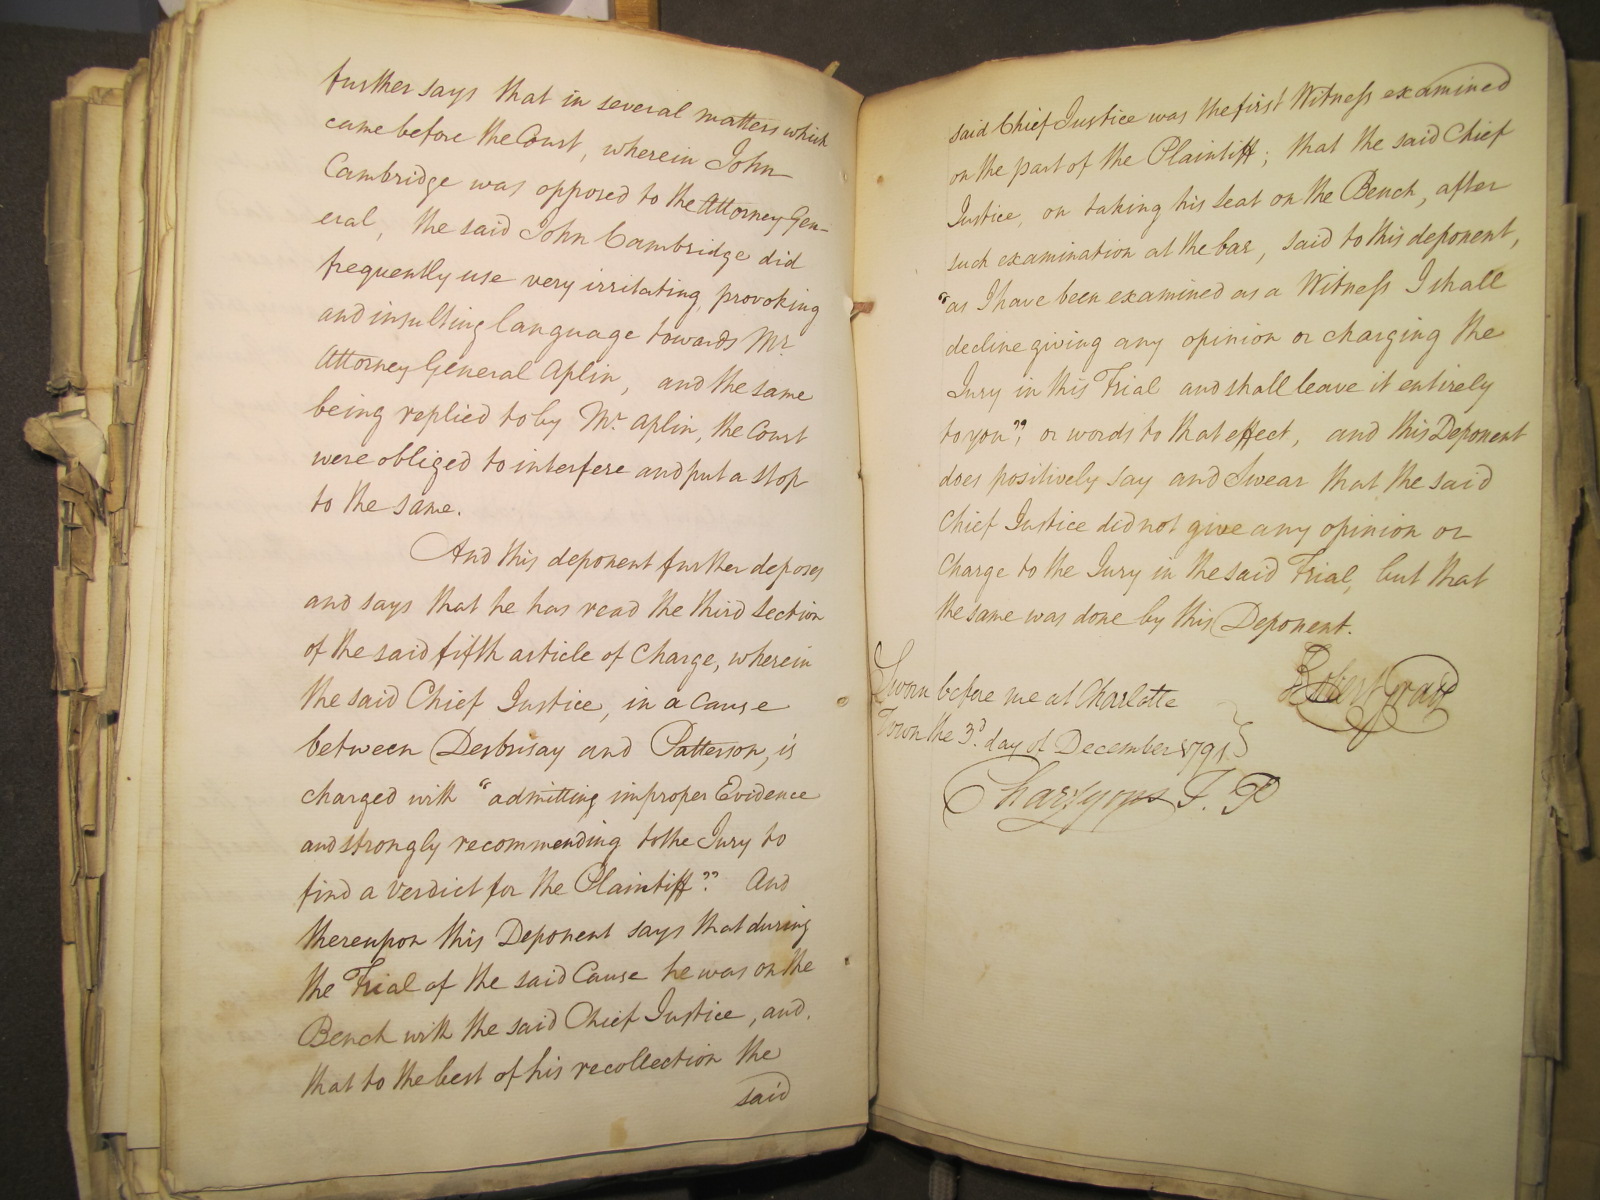 further says that in several matters which
came before the Court, wherein John
Cambridge was opposed to the Attorney Gen-
eral, the said John Cambridge did
frequently use very irritating, provoking
and insulting language towards Mr.
Attorney General Aplin, and the same
being replied to by Mr. Aplin, the Court
were obliged to interfere and put a stop
to the same.
And this deponent further deposes
and says that he has read the third Section
of the said fifth article of Charge, wherein
the said Chief Justice, in a cause
between Desbrisay and Patterson, is
charged with "admitting improper Evidence
and strongly recommending to the Jury to
find a verdict for the Plaintiff" And
thereupon this Deponent says that during
the Trial of the said Cause he was on the
Bench with the said Chief Justice, and,
that to the best of his recollection the
said
said Chief Justice was the first Witness examined
on the part of the Plaintiff; that the said Chief
Justice, on taking his Seat on the Bench, after
such examination at the bar, said to this deponent,
"as I have been examined as a Witness I shall
decline giving any opinion or charging the
Jury in this Trial and shall leave it entirely
to you", or words to that effect, and this Deponent
does positively say and Swear that the said
Chief Justice did not give any opinion or
Charge to the Jury in the said Trial, but that
the same was done by this Deponent.
Sworn before me at Charlotte
Town the 3d. day of December 1791.
Robert Gray
Chas Lyons J. P